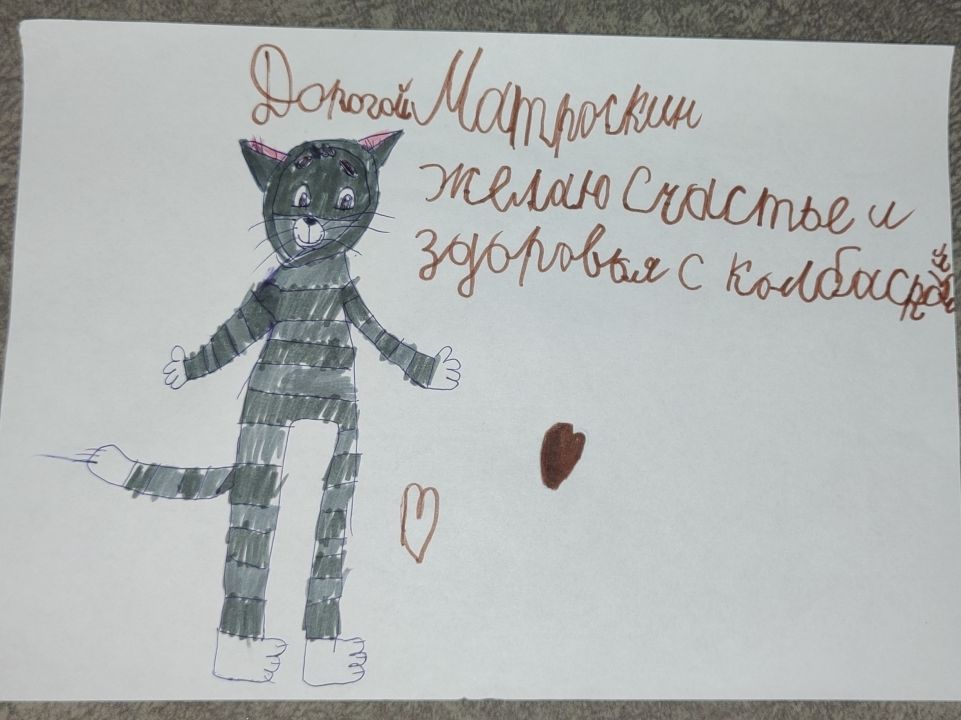 Дорогой Матроскин
желаю счастье и
здоровья с колбасой